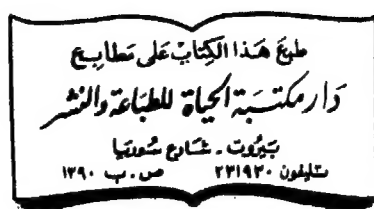 طبع هذا الكتاب على مطابع
دار مكتبة الحياة للطباعة والنشر
بيروت - شارع سوريا
تليفون ٢٣١٩٣٠ ص. ب ١٣٩٠